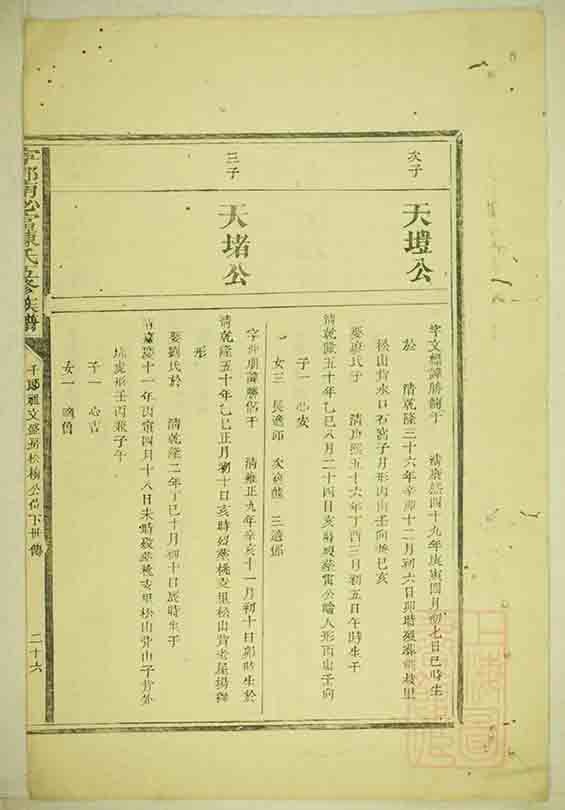 次子
天壇公
字文 諱勝 于 清康熙四十九年庚寅四月初七日巳時生
於 清乾隆三十六年辛卯十二月初六日卯時 葬 枝里
松山背水口石窩子月形丙山壬向 巳亥
娶 氏子 清康熙五十六年丁酉三月初五日午時生于
清乾隆五十年乙巳八月二十四日亥時 葬 公 人形丙山壬向
子一 心安
女三 長適邱 次適熊 三適
三子
天堵公
字 諱勝 于 清雍正九年辛亥十一月初十日卯時生於
清乾隆五十年乙巳正月初十日亥時 葬桃支里松山背老屋場
形
娶劉氏於 清乾隆二年丁巳十月初十日辰時生于
清嘉慶十一年丙寅四月十八日未時歿葬桃支里松山 山子背外
坑虎形壬丙兼子午
子一 心吉
女一 適曾
寧都 陳氏 修族譜
千郎祖文盛房松 公位下世傳
二十六
上海圖